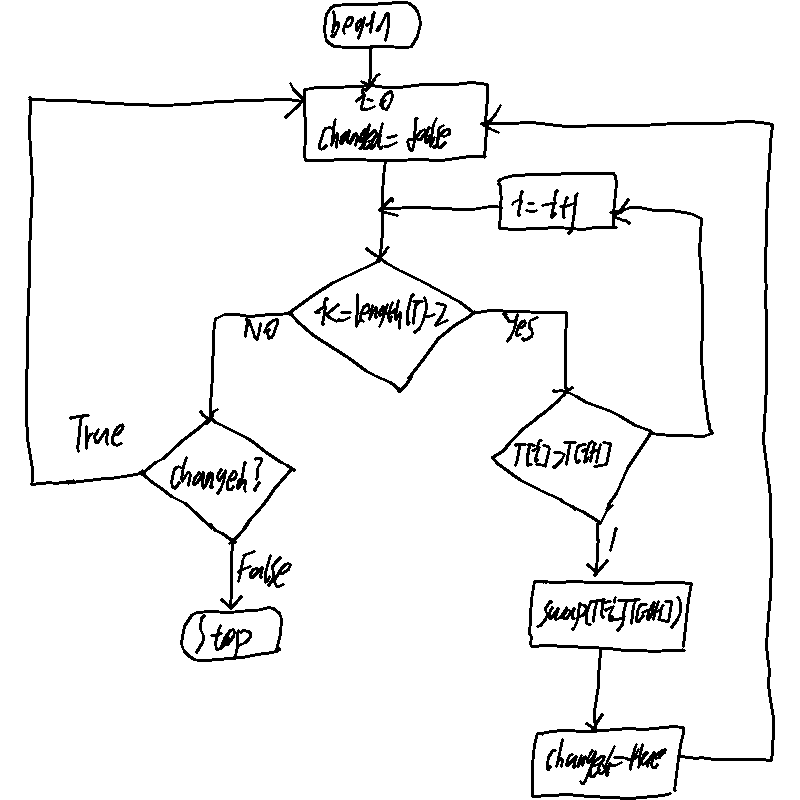 begin
i=0
changed = false
i=i+1
i<=length(T)-2
NO
Yes
True
changed?
T[i]>T[i+1]
False
Stop
swap(T[i],T[i+1])
changed=true